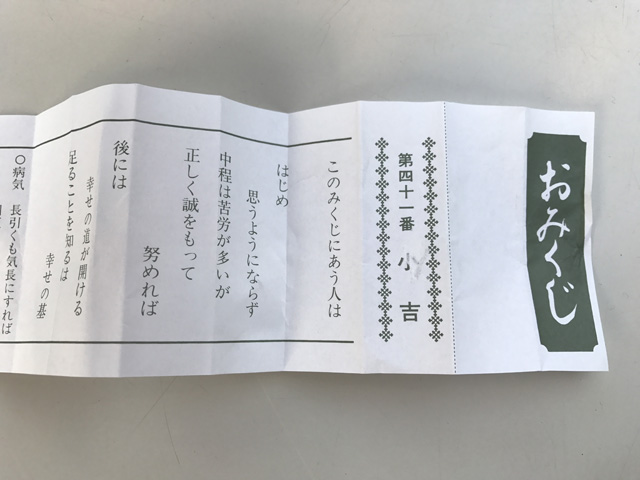 おみくじ
第四十一番 小吉
このみくじにあう人は
はじめ
思うようにならず
中程は苦労が多いが
正しく誠をもって
努めれば
後には
幸せの道が開ける
足ることを知るは
幸せの基
○病気 長引くも気長にすれば